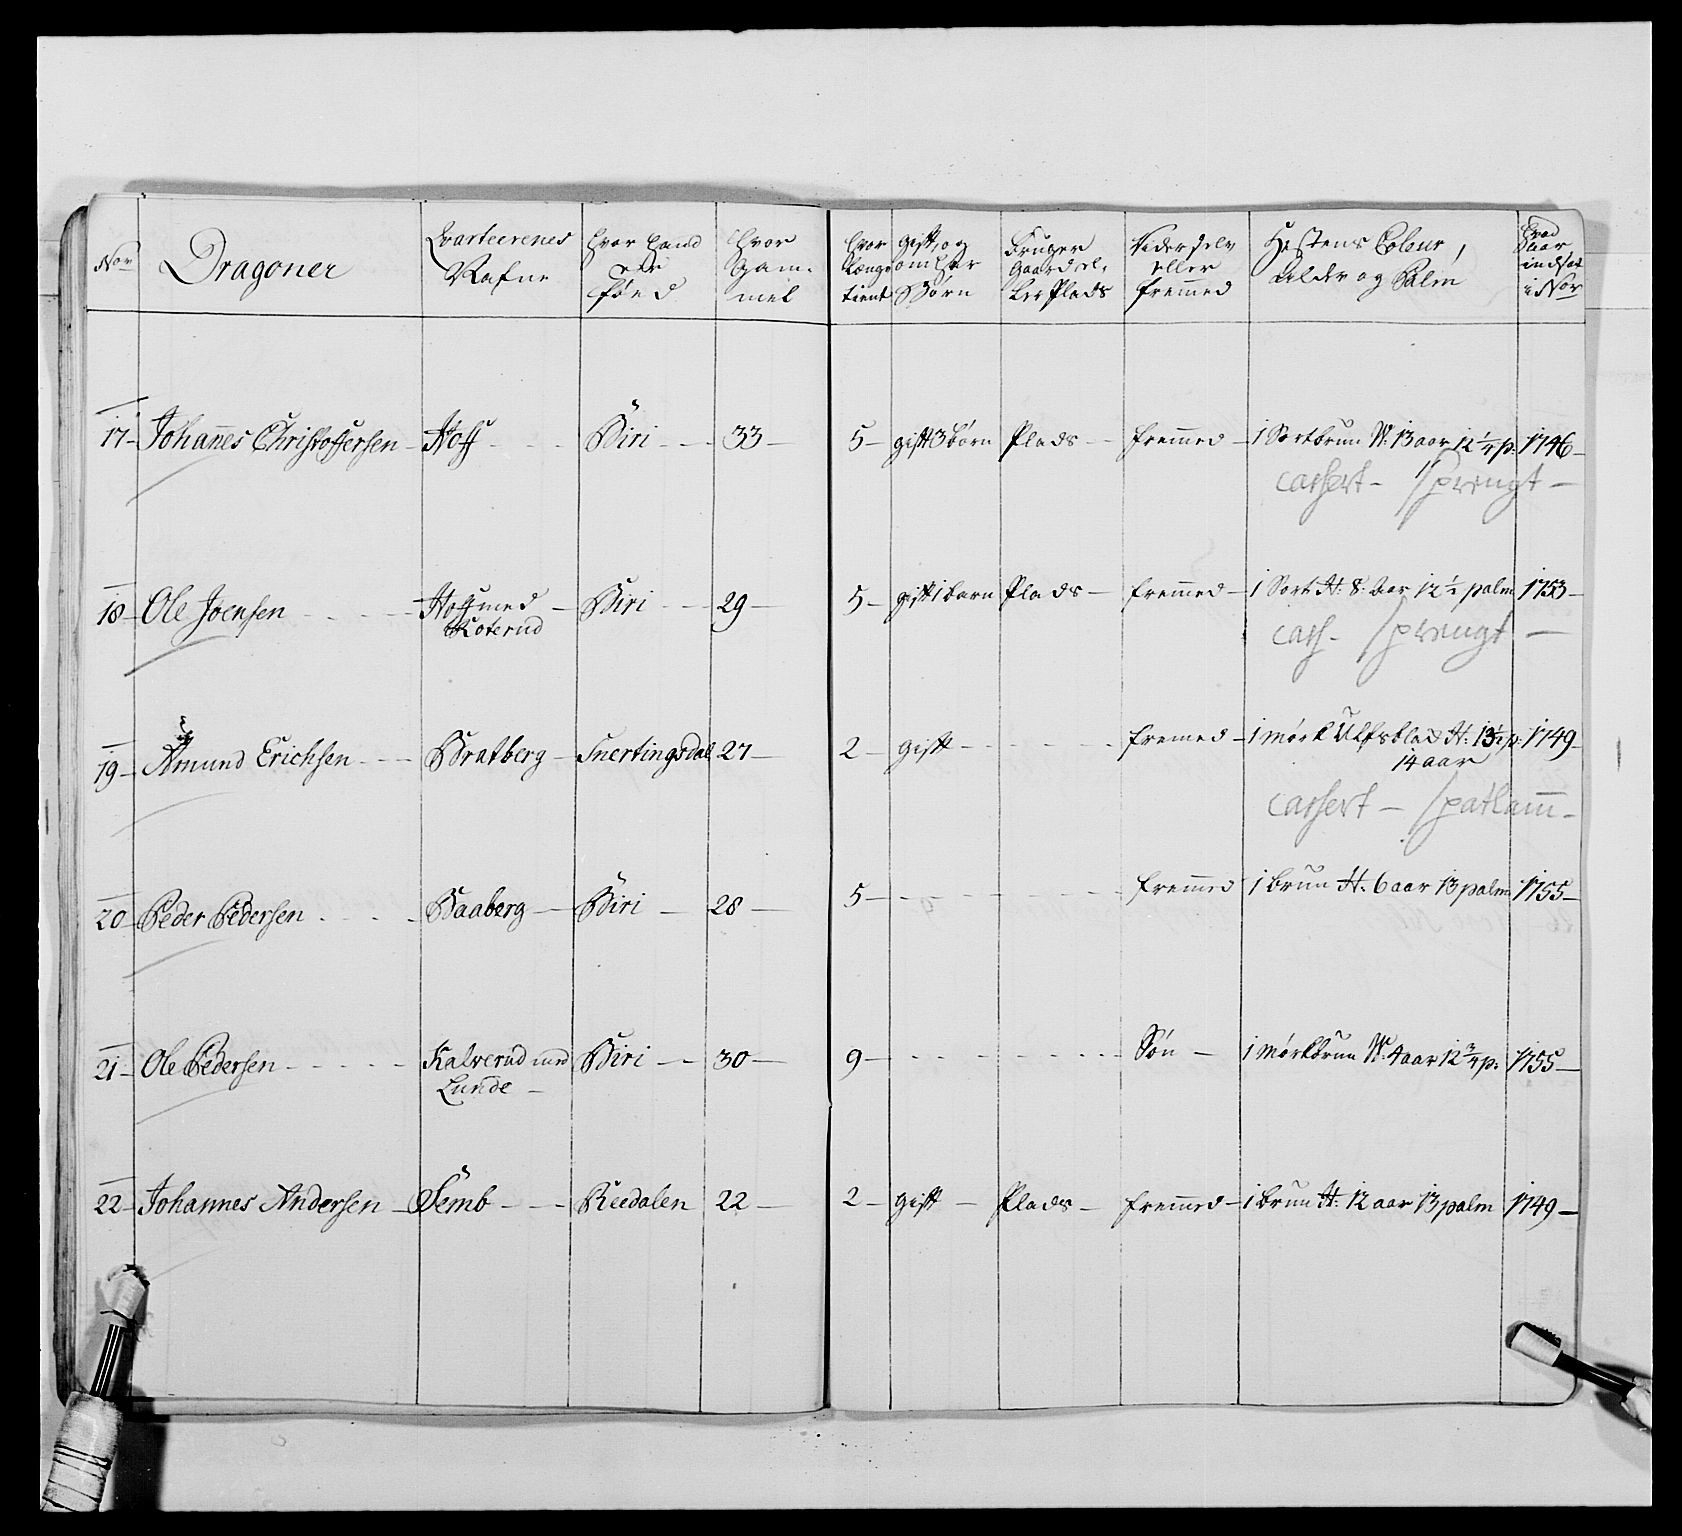 Nor Dragoner Qvarteerenes Nafne Hvor Hand er föed Hvor Gammel Hvor længe tient Gift, og om har Børn Bruger Gaard eller Plads Vider selv eller fremmed Hestens Coleur, Alder og Palm Hvad Aar indsat i Nor
17 – Johannes Christoffersen – Hoff Biri 33 – 5 – gift 3 børn Plads – fremmed – 1 Sortbrun W: 13 aar 12 1/4 p: 1746 –
casert – Sprengt –
18 – Ole Joensen Hoff med – Biri 29 – 5 – gift 1 barn Plads – fremmed – 1 Sort H: 8: Aar 12 1/2 palm 1753 –
Koterud
cass – Sprengt –
19 – Amund Erichsen Bratberg – Snertingsdal 27 – 2 – gift fremed – 1 mørk Ulfsblad H: 13 1/2 p: 1749 –
14 aar
casert – Spatlam –
20 – Peder Pedersen Baaberg – Biri – 28 – 5 – fremmed 1 brun H: 6 aar 13 palm 1755 –
21 – Ole Pedersen Kalverud med Biri 30 – 9 – Søn – 1 mørkbrun W: 4 aar 12 3/4 p: 1755 –
Lunde –
22 – Johannes Andersen – Semb Reedalen 22 – 2 – gift – Plads – fremmed – 1 brun H: 12 aar 13 palm 1749 –